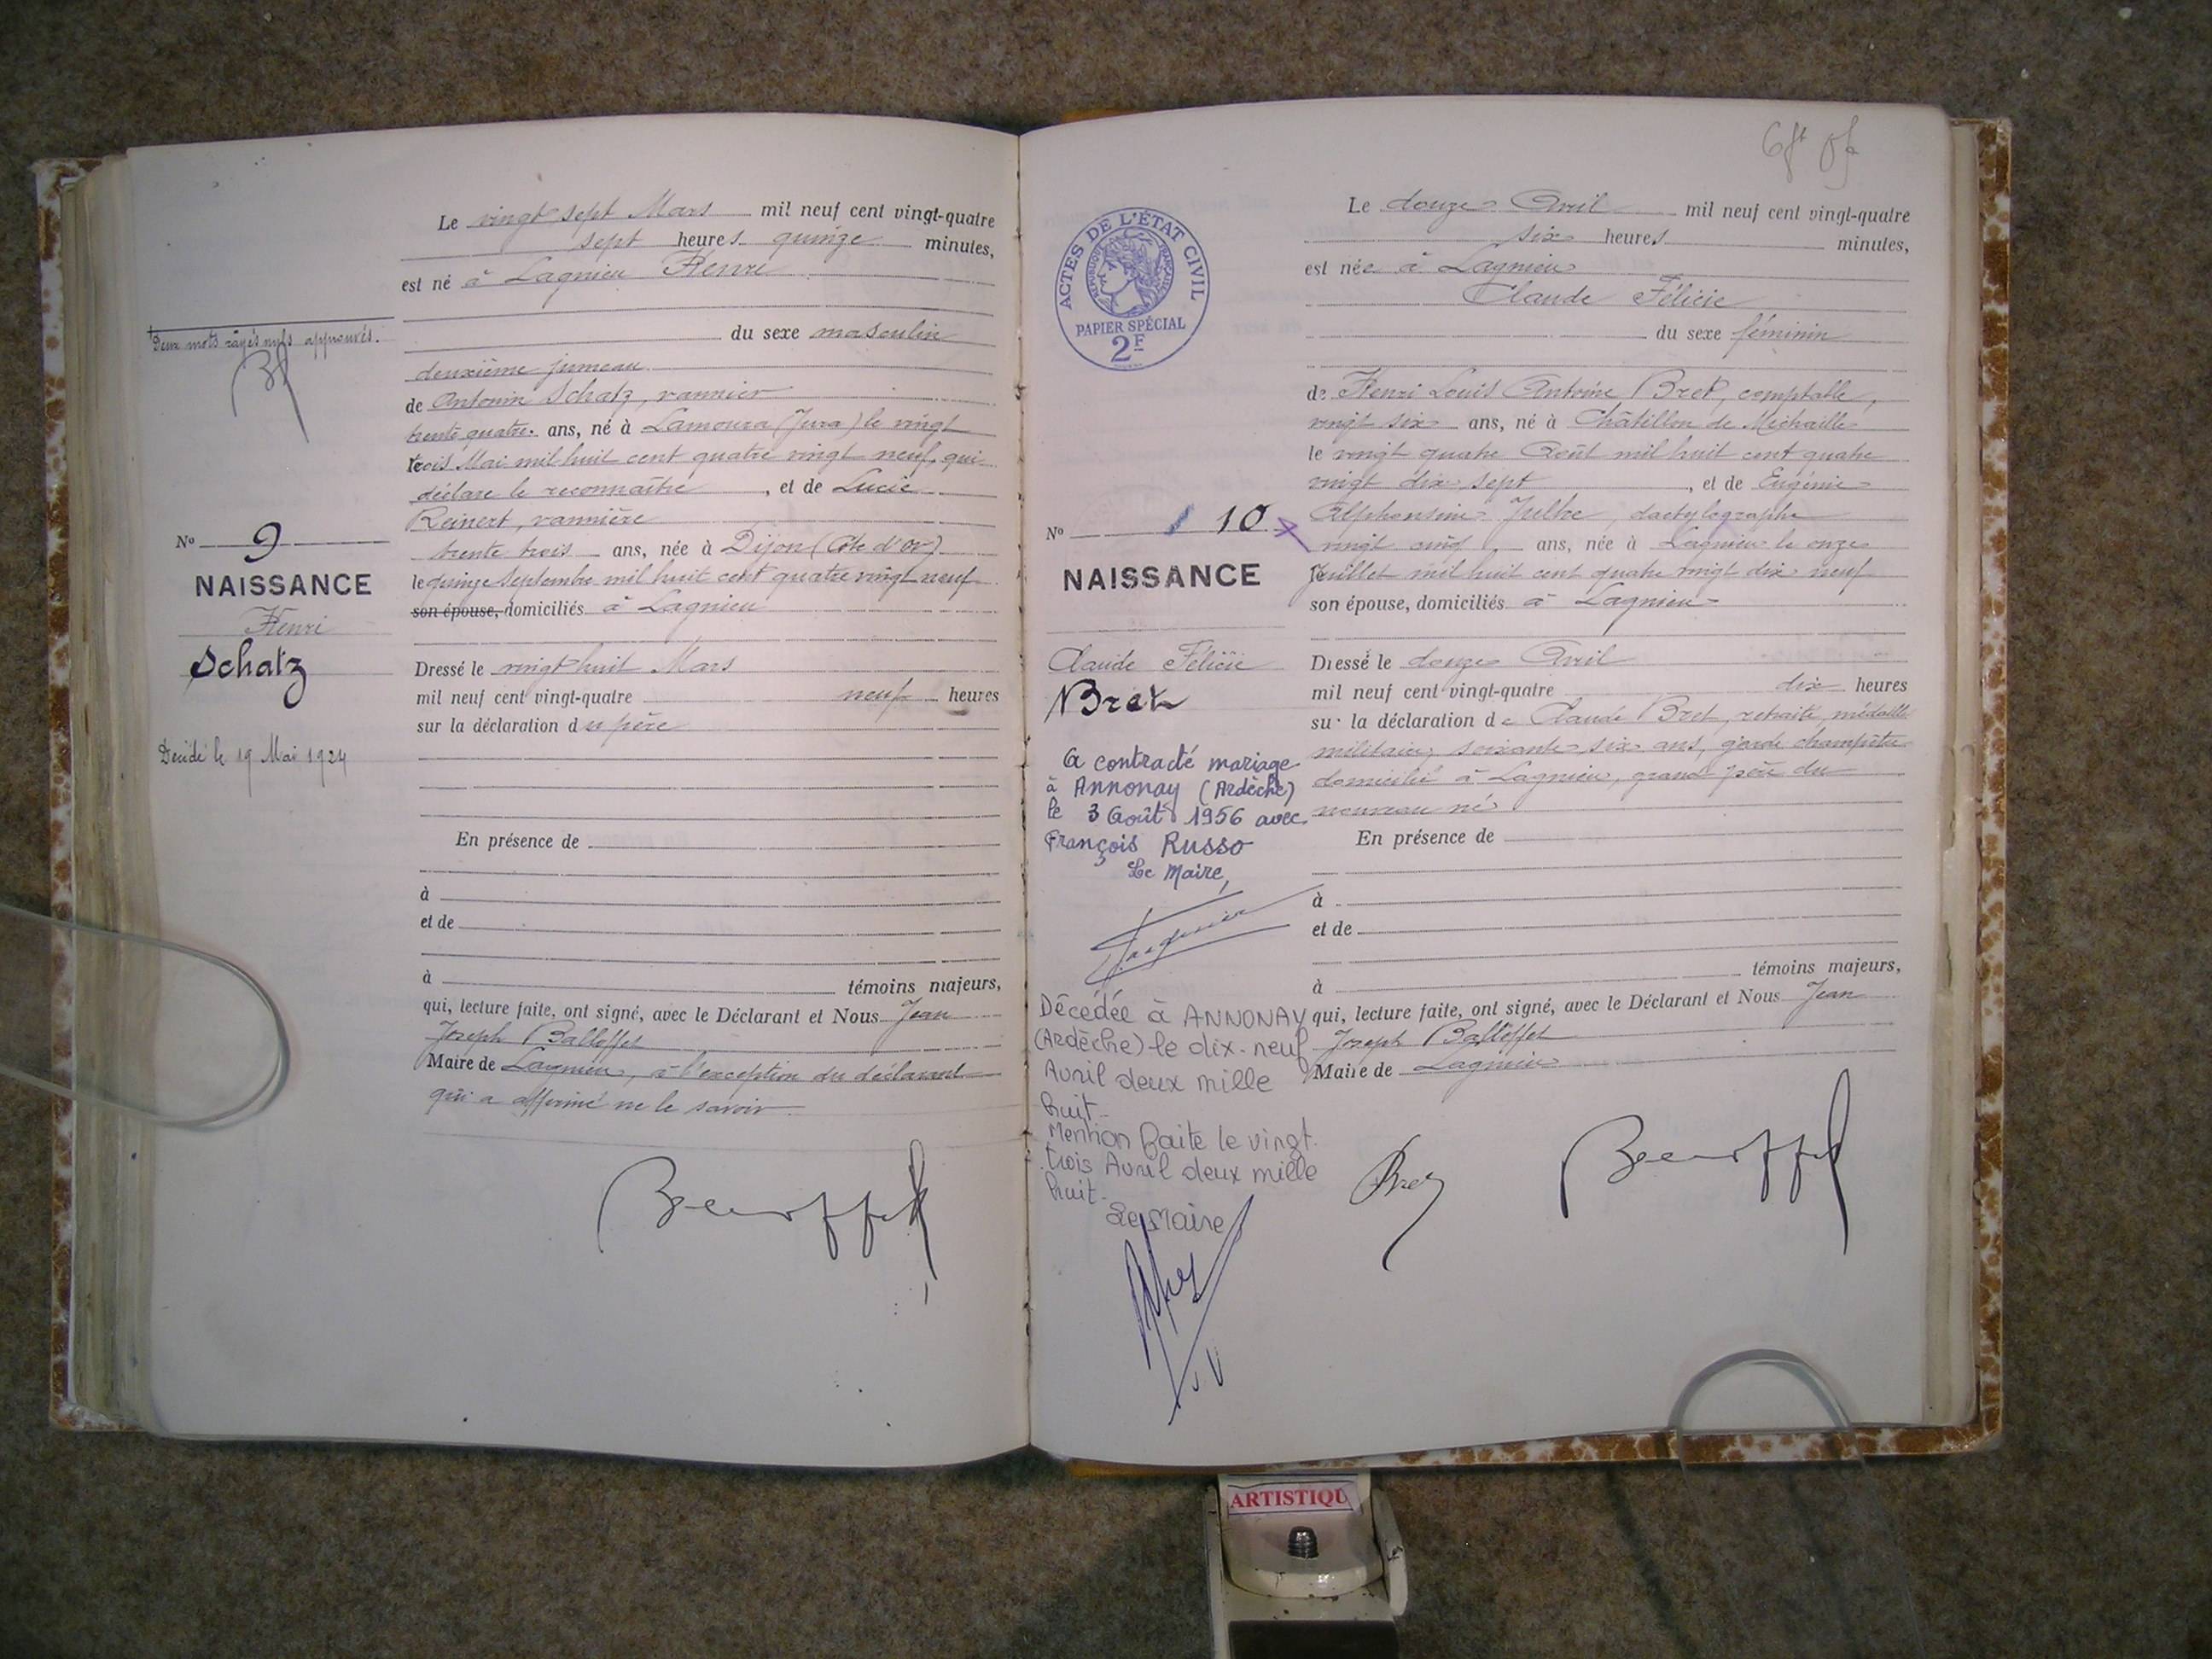 Le vingt sept Mars mil neuf cent vingt-quatre
sept heures quinze minutes,
est né à Lagnieu Henri
du sexe masculin
deuxième jumeau
de Antonin Schatz, vannier
trente quatre ans, né à Lamoura (Jura) le vingt
trois Mai mil huit cent quatre vingt neuf, qui
déclare le reconnaître, et de Lucie
Reinert, vannière
trente trois ans, née à Dijon (Côte d'or)
le quinze Septembre mil huit cent quatre vingt neuf
son épouse, domiciliés à Lagnieu
Dressé le vingt huit Mars
mil neuf cent vingt-quatre neuf heures
sur la déclaration du père
En présence de
à
et de
à témoins majeurs,
qui, lecture faite, ont signé, avec le Déclarant et Nous Jean
Joseph Balloffet
Maire de Lagnieu, à l'exception du déclarant
qui a affirmé ne le savoir.
Deux mots rayés nuls approuvés.
No 9
NAISSANCE
Henri
Schatz
Décédé le 19 Mai 1924
ACTES DE L'ÉTAT CIVIL
RÉPUBLIQUE FRANÇAISE
PAPIER SPÉCIAL
2F
No 10
NAISSANCE
Claude Félicie
Bret
A contracté mariage
à Annonay (Ardèche)
le 3 Août 1956 avec
François Russo
Le Maire,
Décédée à ANNONAY
(Ardèche) le dix-neuf
Avril deux mille
huit.
Mention faite le vingt
trois Avril deux mille
huit.
Le Maire
Le douze Avril mil neuf cent vingt-quatre
six heures minutes,
est née à Lagnieu
Claude Félicie
du sexe féminin
de Henri Louis Antoine Bret, comptable,
vingt six ans, né à Châtillon de Michaille
le vingt quatre Août mil huit cent quatre
vingt dix sept, et de Eugénie
Alphonsine dactylographe
vingt cinq ans, née à Lagnieu le onze
Juillet mil huit cent quatre vingt dix neuf
son épouse, domiciliés à Lagnieu
Dressé le douze Avril
mil neuf cent vingt-quatre dix heures
sur la déclaration de Claude Bret, retraité, médaillé
militaire, soixante six ans, garde champêtre
domicilié à Lagnieu, grand père du
nouveau né
En présence de
à
et de
à témoins majeurs,
qui, lecture faite, ont signé, avec le Déclarant et Nous Jean
Joseph Balloffet
Maire de Lagnieu
Bret
ARTISTIQU